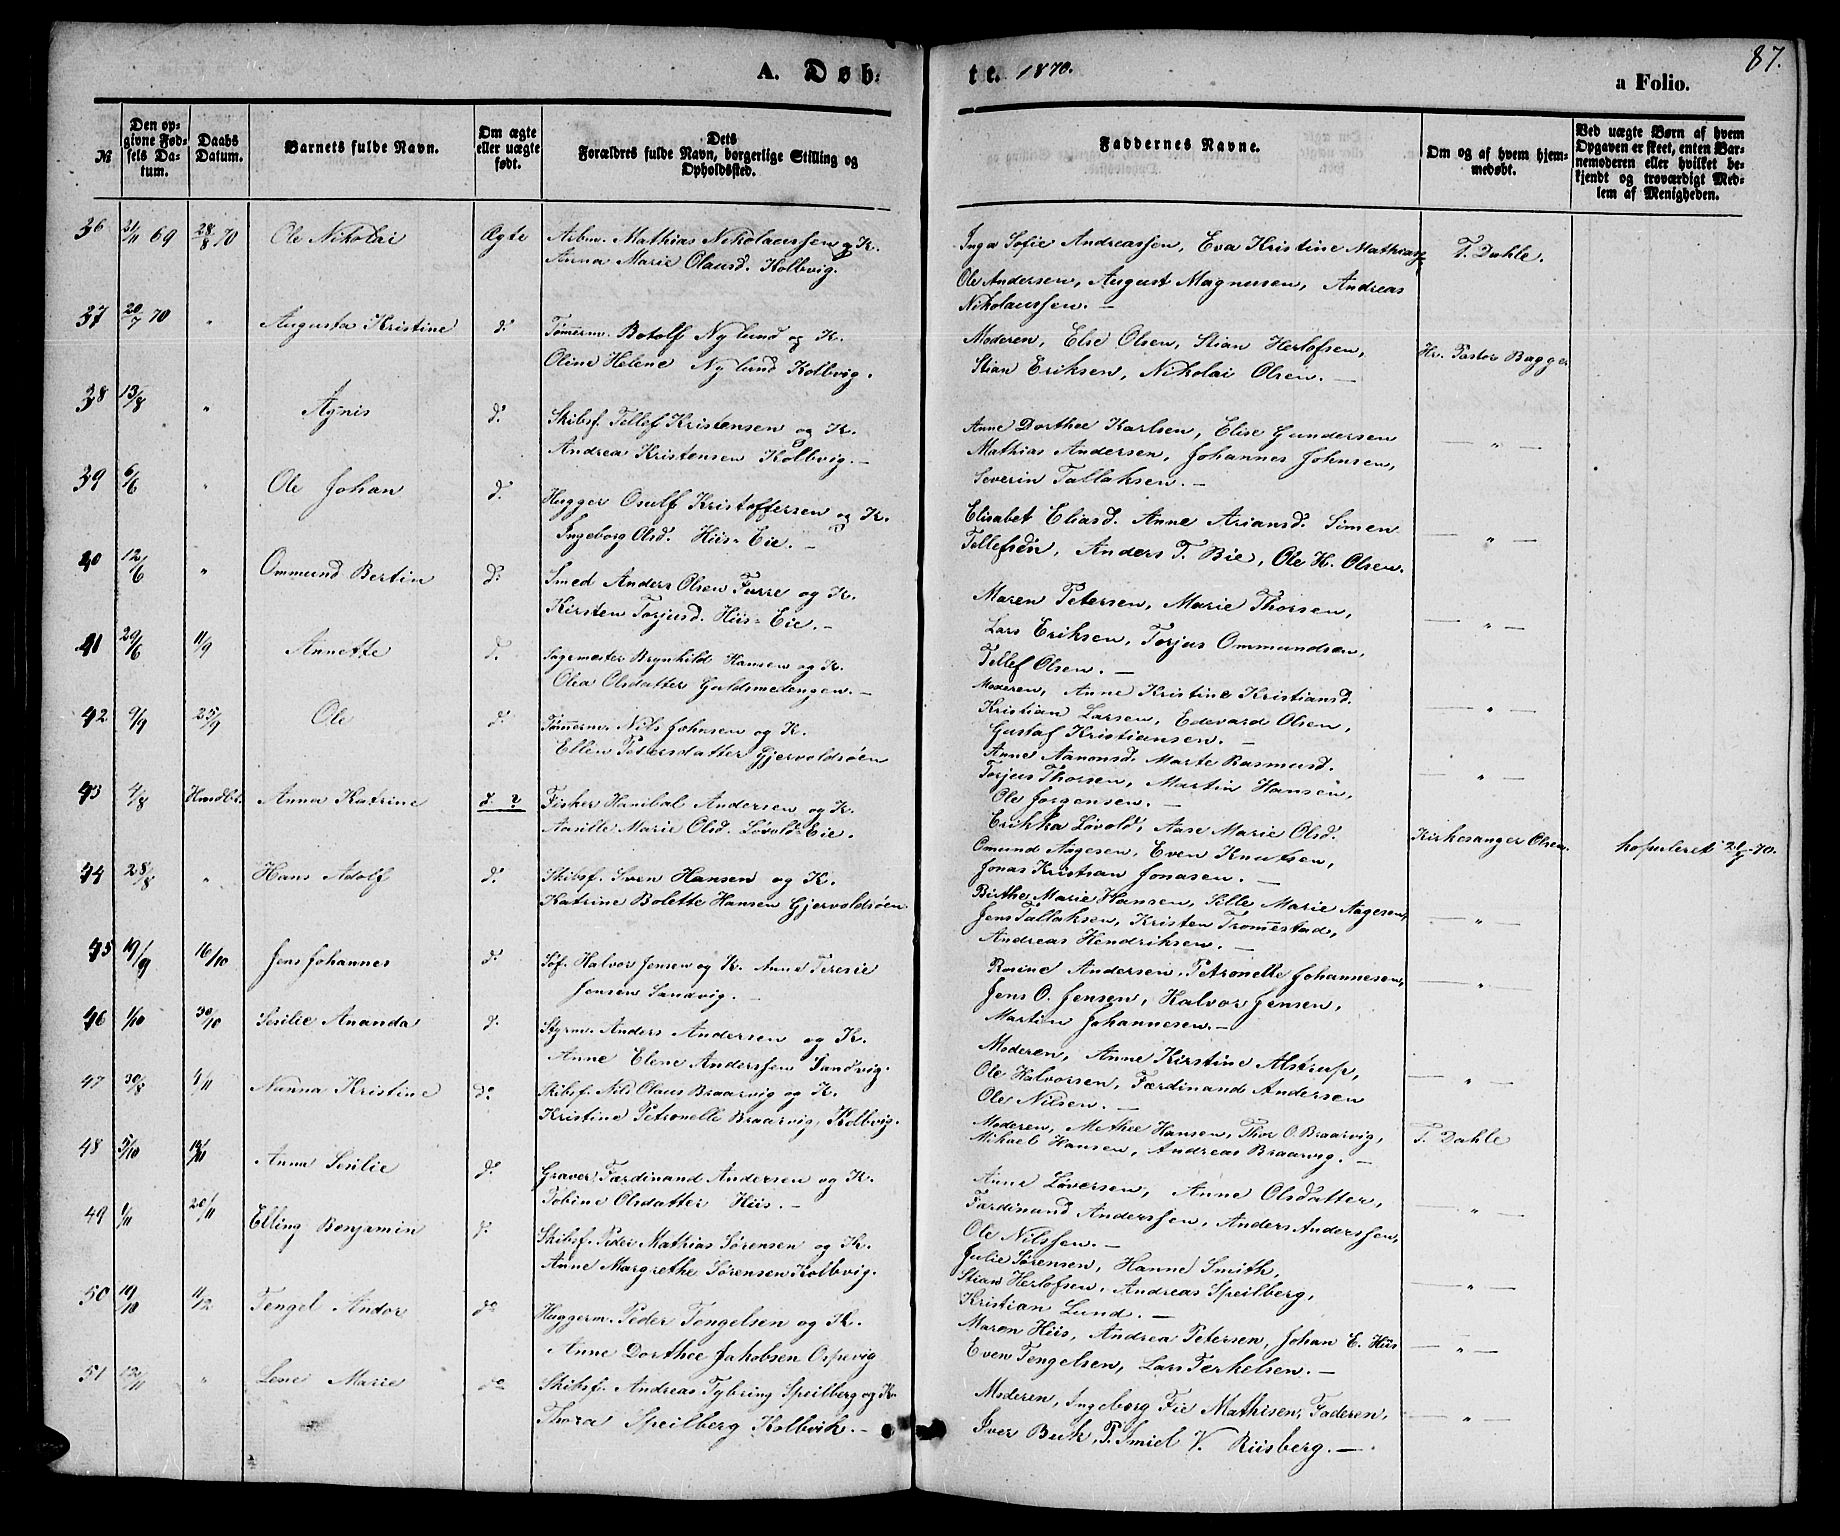 87.
A. Døb- te. 1870. a Folio.
№
Den op-
givne Fød-
sels Da-
tum.
Daabs
Datum.
Barnets fulde Navn.
Om ægte
eller uægte
født.
Dets
Forældres fulde Navn, borgerlige Stilling og
Opholdssted.
Faddernes Navne.
Om og af hvem hjem-
medøbt.
Ved uægte Børn af hvem
Opgaven er skeet, enten Bar-
nemoderen eller hvilket be-
kjendt og troværdigt Med-
lem af Menigheden.
36 21/11 69 28/8 70 Ole Nikolai Ægte Arbm. Mathias Nikolaussen og K.
Anna Marie Olausd. Kolbvig.
Inga Sofie Andreassen, Eva Kristine Mathias
Ole Andersen, August Magnussen, Andreas
Nikolaussen. —
T. Dahle.
37 20/7 70 " Augusta Kristine d. Tømerm. Botolf Nylund og K.
Oline Helene Nylund Kolbvig.
Moderen, Else Olsen, Stian Herlofsen,
Stian Eriksen, Nikolai Olsen. —
Hr. Pastor Bagger
38 13/8 " Agnis d. Skibsf. Tellef Kristensen og K.
Andrea Kristensen Kolbvig. —
Anne Dorthee Karlsen, Elise Gundersen
Mathias Andersen, Johannes Johnsen,
Severin Tallaksen. —
— " —
39 6/6 " Ole Johan d. Hugger Osulf Kristoffersen og K.
Ingeborg Olsd. Hiis-Eie. —
Elisabet Eliasd. Anne Ariansd. Simen
Tellefsen, Anders T. Bie, Ole H. Olsen.
— " —
40 12/6 " Ommund Bertin d. Smed Anders Olsen Furre og K.
Kirsten Torjusd. Hiis-Eie. —
Maren Petersen, Marie Thorsen,
Lars Eriksen, Torjus Ommundsen,
Tellef Olsen. —
— " —
41 29/6 11/9 Annette d. Sagemester Brynhild Hansen og K.
Olea Olsdatter Guldsmedengen. —
Moderen, Anne Kristine Kristiansd.
Kristian Larsen, Edevard Olsen,
Gustaf Kristiansen. —
— " —
42 9/9 25/9 Ole d. Tømerm. Nils Johnsen og K.
Ellen Petersdatter Gjervoldsøen
Anne Aanonsd. Marte Rasmusd.
Torjus Thorsen, Martin Hansen,
Ole Jorgensen. —
— " —
43 4/8 Anna Katrine d. ? Fisker Hanibal Andersen og K.
Aasille Marie Olsd. Løvold-Eie.
Erikka Løvold, Aase Marie Olsd.
Omund Aagesen, Even Knutsen,
Jonas Kristian Jonasen. —
Kirkesanger Olsen.
44 28/8 " Hans Adolf d. Skibsf. Sven Hansen og K.
Katrine Bolette Hansen Gjervoldsøen
Birthe Marie Hansen, Sille Marie Aagesen,
Jens Tallaksen, Kristen Tromestad,
Andreas Hendriksen. —
— " —
45 19/9 16/10 Jens Johannes d. Søf. Halvor Jensen og K. Anne Teresie
Jensen Sandvig. —
Rosine Andersen, Petronelle Johannesen,
Jens O. Jensen, Halvor Jensen,
Martin Johannesen. —
— " —
46 1/10 30/10 Sesilie Ananda d. Styrm. Anders Andersen og K.
Anne Elene Anderssen Sandvig.
Moderen, Anne Kirstine Alstrup,
Ole Halvorsen, Færdinand Andersen
Ole Nilsen. —
— " —
47 30/8 4/11 Nunna Kristine do. Skibsf. Nils Olaus Braarvig og K.
Kristine Petronelle Braarvig, Kolbvig.
Moderen, Methee Hansen, Thor O. Braarvig,
Mikael Hansen, Andreas Braarvig. —
T. Dahle
48 5/10 13/11 Anna Sesilie d. Graver Færdinand Andersen og K.
Tobine Olsdatter Hiis. —
Anne Løversen, Anne Olsdatter,
Færdinand Anderssen, Anders Anderssen,
Ole Nilssen. —
— " —
49 1/11 20/11 Elling Benjamin d. Skibsf. Peder Mathias Sørensen og K.
Anne Margrethe Sørensen Kolbvig.
Julie Sørensen, Hanne Smith,
Stian Herlofsen, Andreas Speilberg,
Kristian Lund. —
— " —
50 19/10 11/12 Tengel Andor do Huggerm. Peder Tengelsen og K.
Anne Dorthee Jakobsen Ospevig
Maren Hiis, Andrea Petersen, Johan E. Hiis
Even Tengelsen, Lars Terkelsen. —
— " —
51 12/11 " Lene Marie do Skibsf. Andreas Tybring Speilberg og K.
Thora Speilberg Kolbvik. —
Moderen, Ingeborg Fie Mathisen, Faderen,
Iver Buch, P. Smiel V. Riisberg. —
— " —